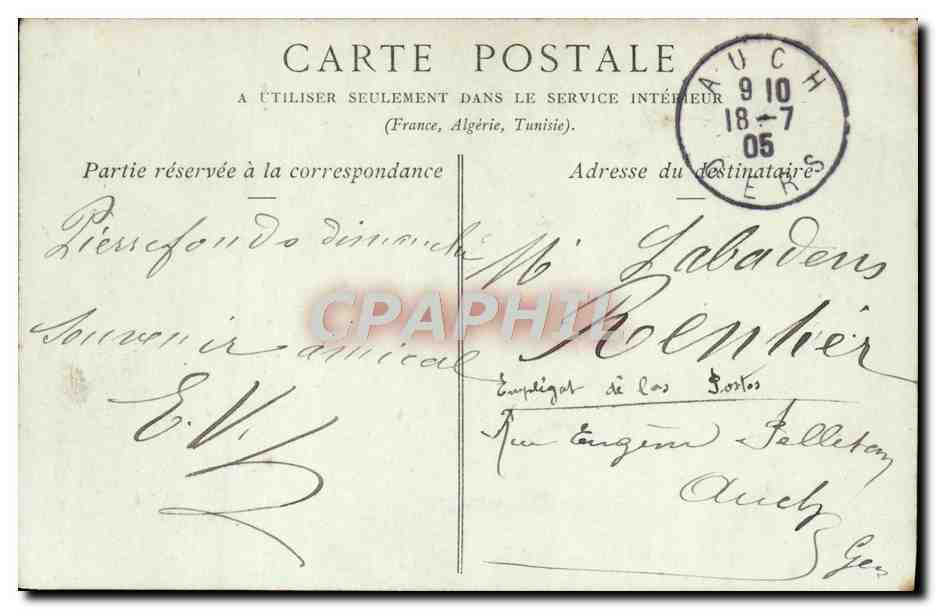 CARTE POSTALE
A UTILISER SEULEMENT DANS LE SERVICE INTÉRIEUR
(France, Algérie, Tunisie).
AUCH
9 10
18-7
05
GERS
Partie réservée à la correspondance
Adresse du destinataire
Pierrefonds dimanche
Souvenir amical
E. V.
Mr Labadens
Rentier
Empligat de las Postos
Rue Eugène Pelletan
Auch
Gers
CPAPHIL